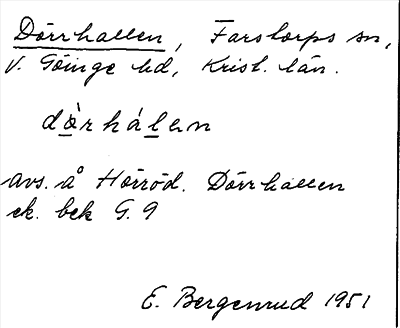 Dörrhallen, Farstorps sn,
V. Göinge hd, Krist. län.
dò̱rháḻen
avs. å Hörröd. Dörrhallen
ek. bek G. 9
E. Bergenrud 1951